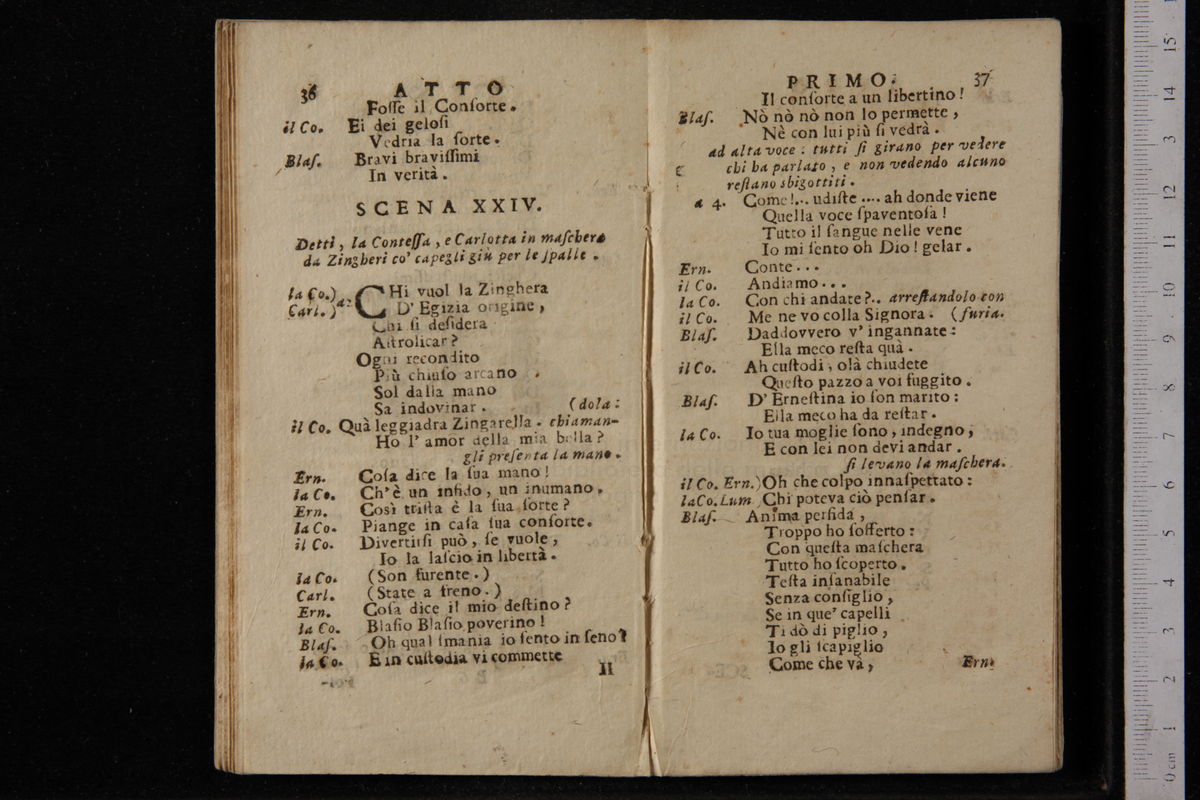 36 ATTO
Foſſe il Conſorte.
il Co. Ei dei geloſi
Vedria la ſorte.
Blaſ. Bravi braviſſimi
In verità.
SCENA XXIV.
Detti, la Conteſſa, e Carlotta in maſchera
da Zingheri co' capegli giù per le ſpalle.
la Co.)
Carl. ) a 2 CHi vuol la Zinghera
D' Egizia origine,
Chi ſi deſidera
Aſtrolicar?
Ogni recondito
Più chiuſo arcano
Sol dalla mano
Sa indovinar. (dola:
il Co. Quà leggiadra Zingarella. chiaman-
Ho l' amor della mia bella?
gli preſenta la mano.
Ern. Coſa dice la ſua mano!
la Co. Ch'è un infido, un inumano.
Ern. Così triſta è la ſua ſorte?
la Co. Piange in caſa ſua conſorte.
il Co. Divertirſi può, ſe vuole,
Io la laſcio in libertà.
la Co. (Son furente.)
Carl. (State a freno.)
Ern. Coſa dice il mio deſtino?
la Co. Blaſio Blaſio poverino!
Blaſ. Oh qual ſmania io ſento in ſeno?
la Co. E in cuſtodia vi commette
Il
PRIMO. 37
Il conſorte a un libertino!
Blaſ. Nò nò nò non lo permette,
Nè con lui più ſi vedrà.
ad alta voce: tutti ſi girano per vedere
chi ha parlato, e non vedendo alcuno
reſtano sbigottiti.
a 4. Come!... udiſte .... ah donde viene
Quella voce ſpaventoſa!
Tutto il ſangue nelle vene
Io mi ſento oh Dio! gelar.
Ern. Conte...
il Co. Andiamo...
la Co. Con chi andate?.. arreſtandolo con
il Co. Me ne vo colla Signora. (furia.
Blaſ. Daddovvero v' ingannate:
Ella meco reſta quà.
il Co. Ah cuſtodi, olà chiudete
Queſto pazzo a voi fuggito.
Blaſ. D' Erneſtina io ſon marito:
Ella meco ha da reſtar.
la Co. Io tua moglie ſono, indegno,
E con lei non devi andar.
ſi levano la maſchera.
il Co. Ern.) Oh che colpo innaſpettato:
la Co. Lum Chi poteva ciò penſar.
Blaſ. Anima perfida,
Troppo ho ſofferto:
Con queſta maſchera
Tutto ho ſcoperto.
Teſta inſanabile
Senza conſiglio,
Se in que' capelli
Ti dò di piglio,
Io gli ſcapiglio
Come che và,
Ern.